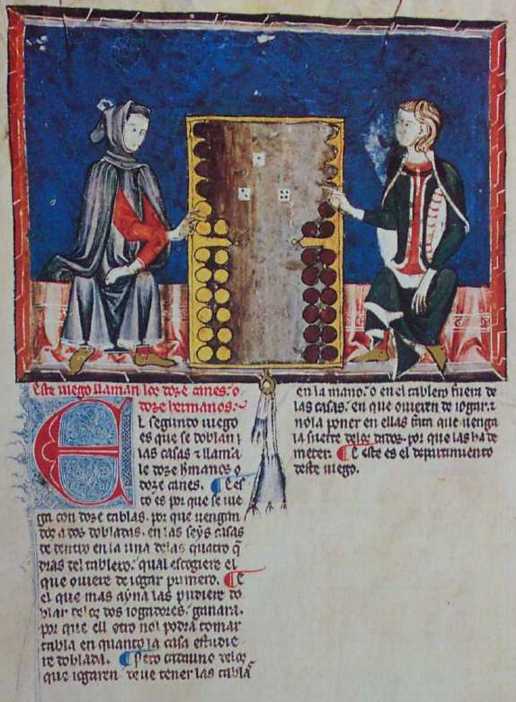 Este iuego llaman los doze canes. o
doze hermanos.
EL segundo iuego
es que se doblan
las casas ⁊ llama
le doze hmanos o
doze canes. ¶ Et es
to es por que se iue
ga con doze tablas. por que uengan
dos a dos dobladas. en las seys casas
de dentro en la una delas quatro q̃
dras del tablero. qual escogiere el
que ouiere de iogar primero. ¶ E
el que mas ayna las pudiere do
blar delos dos iogadores. ganara.
por que ell otro nol podra tomar
tabla en quanto la casa estudie
re doblada. ¶ Pero cadauno delos
que iogaren deue tener las tablas
en la mano. o en el tablero fuera de
las casas. en que ouieren de iogar. ⁊
nola poner en ellas fata que uenga
la suerte delos dados. por que las ha de
meter. ¶ E este es el departimiento
deste iuego.